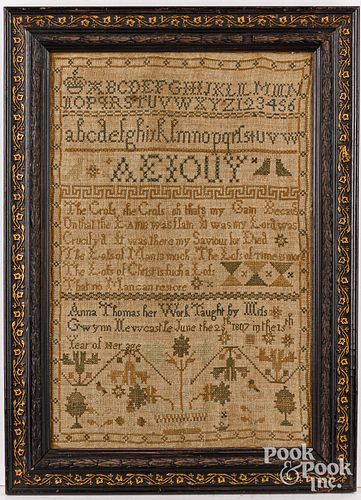 ABCDEFGHIJKLLMMNN
NOPQRSTUVWXYZ123456
abcdefghiklmnopqrstuvw
AEIOUY
The Cross the Cross oh thats my Gain Becaus
On that the Lamb was slain It was my Lord was
Crucify'd It was there my Saviour for Died
The Loss of Man is much The Loss of time is more
The Loss of Christ is such a Loss
That no Man can restore
Anna Thomas her Work Taught by Miss
Gwynn Newcastle June the 25th 1807 in the 13th
Year of Her age
POOK
& POOK
Inc.